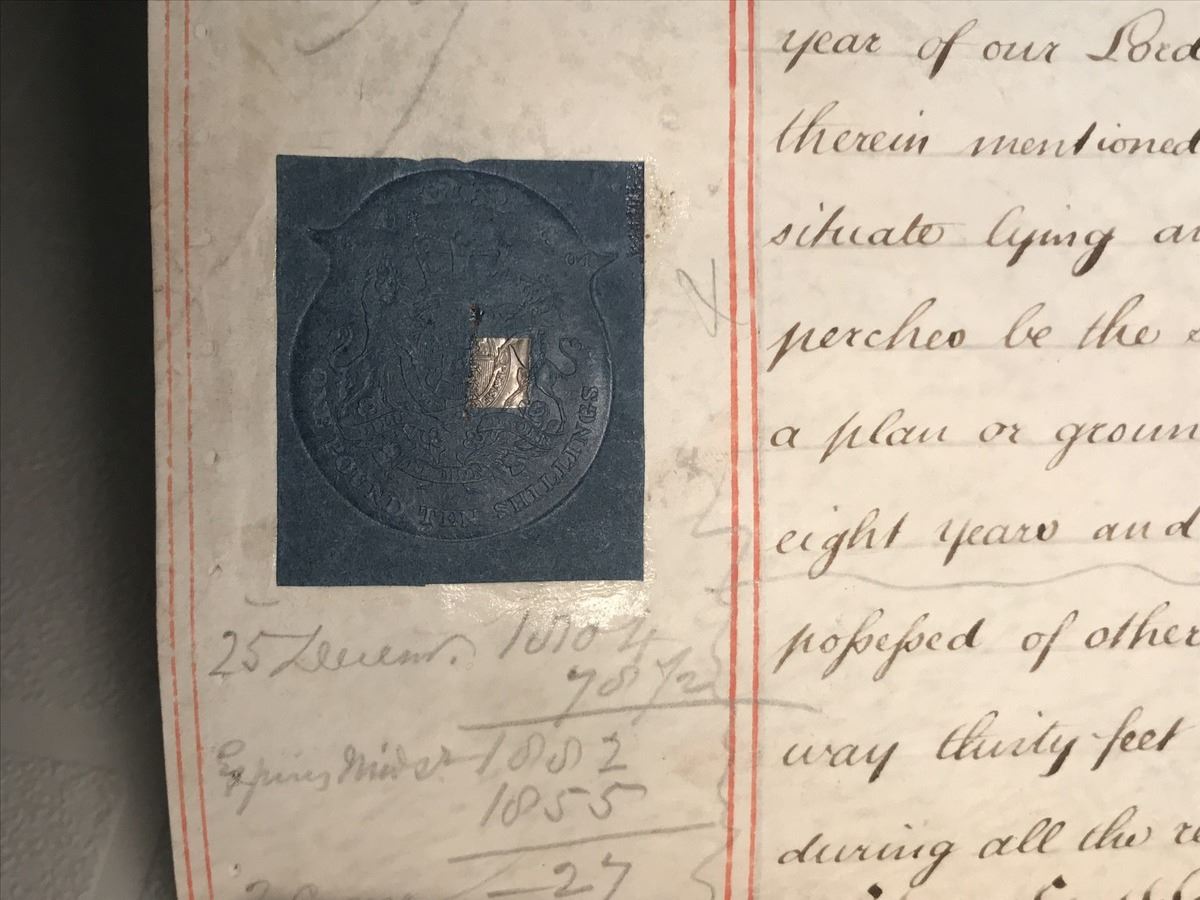 ONE POUND TEN SHILLINGS
25 Decemr. 1804
78 1/2
Expires Midsr 1882
1855
27
year of our Lord
therein mentioned
situate lying
perches be the
a plan or
eight years and
poſseſsed of other
way thirty feet
during all the